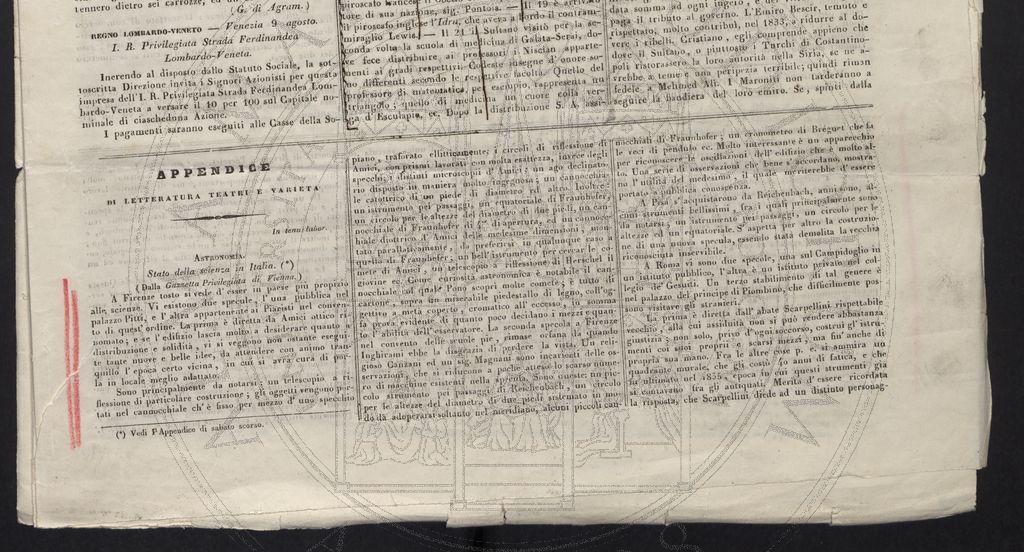 tennero dietro sei carrozze, ed
(G. di Agram.)
REGNO LOMBARDO-VENETO — Venezia 9 agosto.
I. R. Privilegiata Strada Ferdinandea
Lombardo-Veneta.
Inerendo al disposto dallo Statuto Sociale, la sot-
toscritta Direzione invita i Signori Azionisti per questa
impresa dell'I. R. Privilegiata Strada Ferdinandea Lom-
bardo-Veneta a versare il 10 per 100 sul Capitale no-
minale di ciascheduna Azione.
I pagamenti saranno eseguiti alle Casse della So-
tore di sua nazione, sig. Pontois. — Il 19 è arrivato
Il piroscafo inglese l'Idra, che aveva a bordo il contram-
miraglio Lewis. — Il 21 il Sultano visitò per la se-
conda volta la scuola di medicina di Galata-Serai, do-
ve fece distribuire ai professori i Niscian apparte-
nenti ai gradi rispettivi. Codeste insegne d'onore so-
no differenti secondo le rispettive facoltà. Quello del
professore di matematica, per esempio, rappresenta un
triangolo; quello di medicina un cuore colla ver-
ga d'Esculapio, ec. Dopo la distribuzione S. A. assi-
data somma ad ogni ingiuro, e
paga il tributo al governo. L'Emiro Bescir, temuto e
rispettato, molto contribuì, nel 1833, a ridurre al do-
vere i ribelli. Cristiano, egli comprende appieno che
se il Sultano, o piuttosto i Turchi di Costantino-
poli ristorassero la loro autorità nella Siria, se ne a-
vrebbe a teme e una peripezia terribile; quindi riman
fedele a Mehmed Alì. I Maroniti non tarderanno a
seguire la bandiera del loro emiro. Se, spinti dalla
APPENDICE
DI LETTERATURA TEATRI E VARIETA
In tenui labor.
ASTRONOMIA.
Stato della scienza in Italia. (*)
(Dalla Gazzetta Privilegiata di Vienna.)
A Firenze tosto si vede d'esser in paese più propizio
alle scienze. Vi esistono due specule, l'una pubblica nel
palazzo Pitti, e l'altra appartenente ai Piaristi nel conven-
to di quest'ordine. La prima è diretta da Amici ottico ri-
nomato; e se l'edifizio lascia molto a desiderare quanto a
distribuzione e solidità, vi si veggono non ostante esegui-
te tante nuove e belle idee, da attendere con animo tran-
quillo l'epoca certo vicina, in cui si avrà cura di por-
la in locale meglio adattato.
Sono principalmente da notarsi; un telescopio a ri-
flessione di particolare costruzione; gli oggetti vengono por-
tati nel cannocchiale ch'è fisso per mezzo d'uno specchio
(*) Vedi l'Appendice di sabato scorso.
piano, traforato ellitticamente; i circoli di riflessione di
Amici, con prismi lavorati con molta esattezza, invece degli
specchi; i distinti microscopii d'Amici; un ago declinato-
rio disposto in maniera molto ingegnosa; un cannocchia-
le catottrico di un piede di diametro ed altro. Inoltre:
un istrumento pei passaggi, un equatoriale di Fraunhofer,
un circolo per le altezze del diametro di due piedi, un can-
nocchiale di Fraunhofer di 4''' di apertura, ed un cannoc-
chiale diottrico d'Amici delle medesime dimensioni, mon-
tato parallaticamente, da preferirsi in qualunque caso a
quello di Fraunhofer; un bell'istrumento per cercar le co-
mete di Amici, un telescopio a riflessione di Herschel il
giovine ec. Come curiosità astronomica è notabile il can-
nocchiale col quale Pons scoprì molte comete; è tutto di
cartone, sopra un miserabile piedestallo di legno, coll'og-
gettivo a metà coperto, cromatico all'eccesso, in somma
fa prova evidente di quanto poco decidano i mezzi e quan-
to l'abilità dell'osservatore. La seconda specola a Firenze
nel convento delle scuole pie, rimase orfana da quando
Inghirami ebbe la disgrazia di perdere la vista. Un reli-
gioso Canzani ed un sig. Magnani sono incaricati delle os-
servazioni, che si riducono a poche atteso lo scarso nume-
ro di macchine esistenti nella specola. Sono queste: un pic-
colo strumento pei passaggi, di Reichenbach, un circolo
per le altezze del diametro di due piedi sistemato in mo-
do da adoperarsi soltanto nel meridiano, alcuni piccoli can-
nocchiali di Fraunhofer; un cronometro di Bréguet che fa
le veci di pendulo ec. Molto interessante è un apparecchio
per riconoscere le oscillazioni dell'edifizio che è molto al-
to. Una serie di osservazioni che bene s'accordano, mostra-
no l'utilità del medesimo, il quale meriterebbe d'essere
recato a pubblica conoscenza.
A Pisa s'acquistarono da Reichenbach, anni sono, al-
cuni strumenti bellissimi, fra i quali principalmente sono
da notarsi; un istrumento pei passaggi, un circolo per le
altezze ed un equatoriale. S'aspetta per altro la costruzio-
ne di una nuova specula, essendo stata demolita la vecchia
riconosciuta inservibile.
A Roma vi sono due specole, una sul Campidoglio in
un istituto pubblico, l'altra è un istituto privato nel col-
legio de' Gesuiti. Un terzo stabilimento di tal genere è
nel palazzo del principe di Piombino, che difficilmente pos-
sono visitare gli stranieri.
La prima è diretta dall'abate Scarpellini rispettabile
vecchio, alla cui assiduità non si può rendere abbastanza
giustizia; non solo, privo d'ogni soccorso, costruì gl'istru-
menti coi suoi propri e scarsi mezzi, ma fin'anche di
propria sua mano. Fra le altre cose ivi, si ammira un
quadrante murale, che gli costò 40 anni di fatica, e che
fu ultimato nel 1835, epoca in cui questi strumenti già
si contavano fra gli antiquati. Merita d'essere ricordata
la risposta, che Scarpellini diede ad un distinto personag-